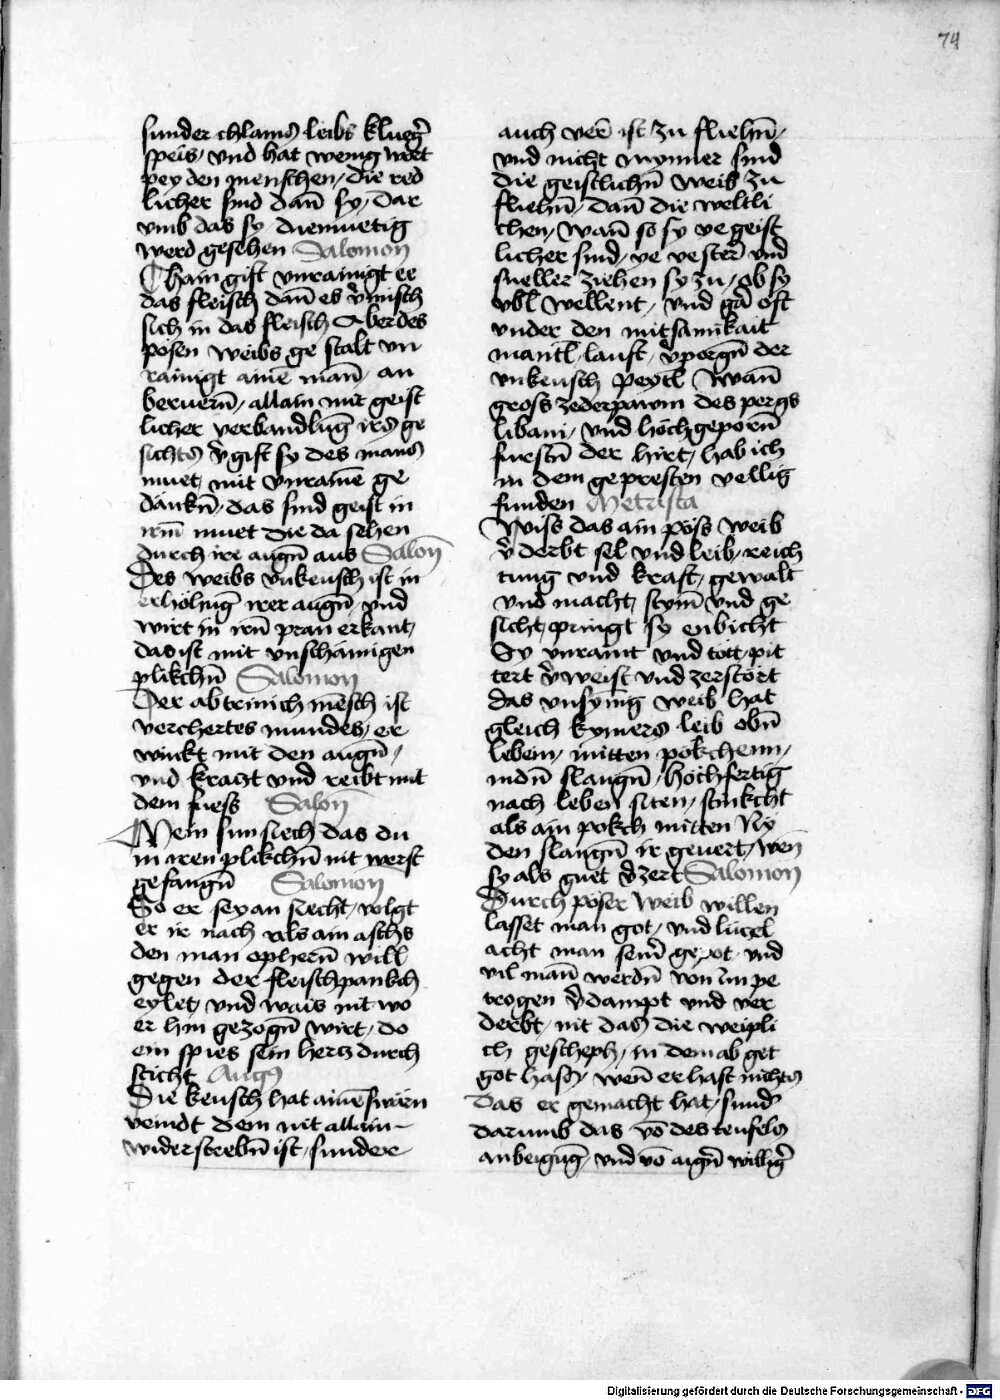 74
sunder chlains leibs klueg̃
speis, vnd hat wenig wort
pey den menschen, die red
licher sind dañ sy, dar
vmb das sy diemuetig
werd gesehen Salomon
Chain gift vnrainigt er
das fleisch dañ es ṽmisch
sich in das fleisch Aber des
pösen weibs ge stalt vn
rainigt ainē mañ, an
beruerñ, allain mit geist
licher verbandlũg irs ge
sichts ṽgift sy des mans
muet, mit vnrainē ge
dänkñ, das sind geist in
irm̃ muet die da sehen
durch ire augñ aus Saloñ
Des weibs vnkeusch ist in
erhölnũg irer augñ, vnd
wirt in irñ pran erkant,
das ist mit vnschamigen
plikchñ Salomon
Der abtrinich mẽsch ist
verchertes mundes, er
winkt mit den augñ,
vnd kraczt vnd reibt mit
dem fuess Saloñ
Mein sun siech das du
in iren plikchñ nit werst
gefangñ Salomon
So er sey an siecht, volgt
er ir nach als ain aschs
den man opherñ will
gegen der fleischpankch
eylet, vnd wais nit wo
er hin gezogñ wirt, do
ein spies sein hercz durch
sticht Augꝰ
Die keusch hat ainē swärn
veindt dem nit allain
widerstrebñ ist, sunder
auch verr̃ ist zu fliehñ,
vnd nicht mynner sind
die geistlichñ weib zu
fliehñ, dañ die weltli
chen, wañ so sy ye geist
licher sind, ye vester̃ vnd
sneller ziehen sy zu, ob sy
vbl wellent, vnd gar̃ oft
vnder den mitsamkait
mantl̃ lauft, ṽporgñ der
vnkeusch pextl̃ Wañ
gross zederpawm des pergs
libani, vnd höchgeporñ
furstñ der hirt, hab ich
in dem gepresten vellig
funden Metrista
Wiss das ain pöss weib
ṽderbt sel vnd leib, reich
tung vnd kraft, gewalt
vnd macht, stym̃ vnd ge
sicht, pringt sy enbicht
Sy vnraint vnd tött, pit
tert ṽweist vnd zerstört
das vnsynnig weib hat
gleich kymers leib obñ
lebein, mitten pokchenn,
nidñ slangñ, hochfertig
nach leben siten, stinkcht
als ain pokch mitten Ny
den slangñ ir geuert, weñ
sy als guet ṽzert Salomon
Durch pöser weib willen
lasset man got, vnd lüczel
acht man seiner̃ gepot, vnd
vil mañ werdñ von im pe
trogen ṽdampt vnd ver
derbt, nit das die weipli
ch gescheph, in dem ab get
got hass, weñ er hast nichts
das er gemacht hat, sund̃
darumb das võ des teufels
anbeigũg, vnd võ aigñ willig̃
Digitalisierung gefördert durch die Deutsche Forschungsgemeinschaft - DFG